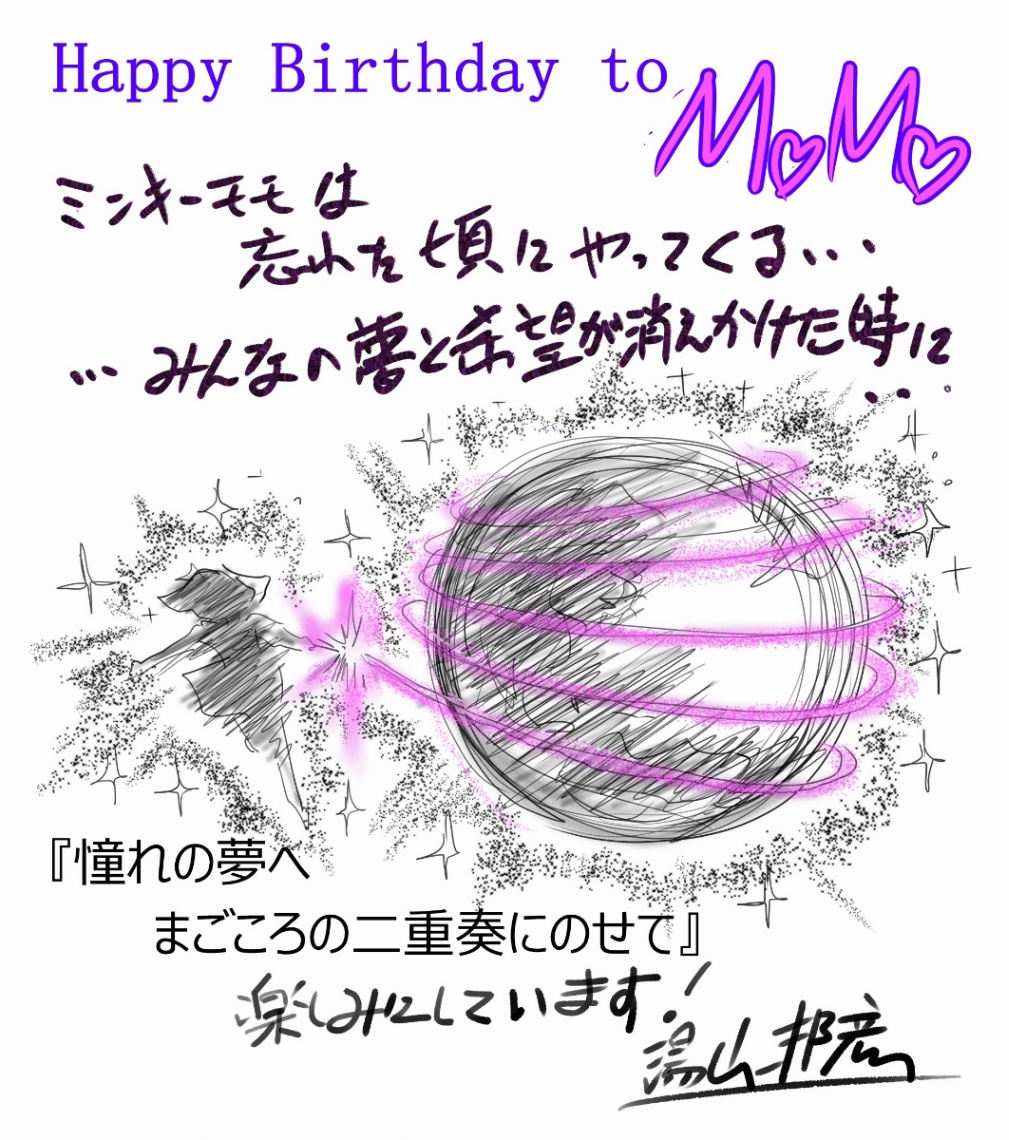 Happy Birthday to MoMo
ミンキーモモは
忘れた頃にやってくる...
...みんなの夢と希望が消えかけた時に...
『憧れの夢へ
まごころの二重奏にのせて』
楽しみにしています!
湯山邦彦